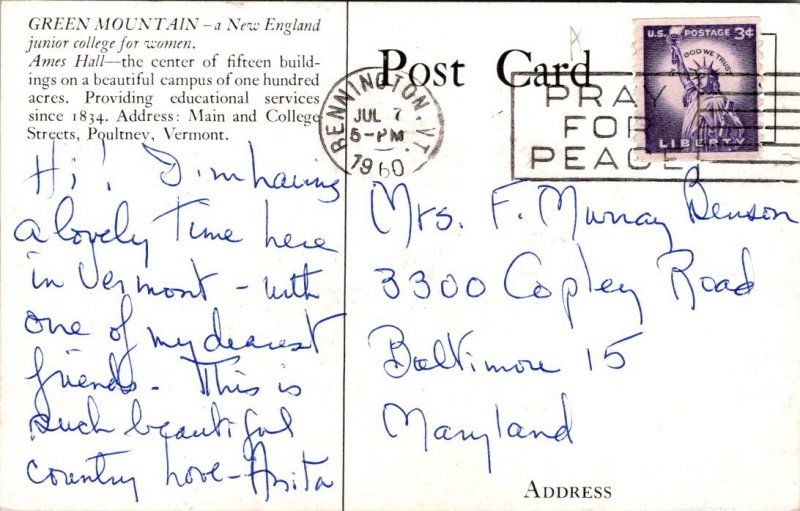 GREEN MOUNTAIN – a New England
junior college for women.
Ames Hall—the center of fifteen build-
ings on a beautiful campus of one hundred
acres. Providing educational services
since 1834. Address: Main and College
Streets, Poultney, Vermont.
Hi! I'm having
a lovely time here
in Vermont - with
one of my dearest
friends. This is
such beautiful
country Love - Anita
Post Card
BENNINGTON, VT.
JUL 7
5-PM
1960
PRAY
FOR
PEACE
U.S. POSTAGE 3¢
IN GOD WE TRUST
LIBERTY
Mrs. F. Murray Benson
3300 Copley Road
Baltimore 15
Maryland
ADDRESS